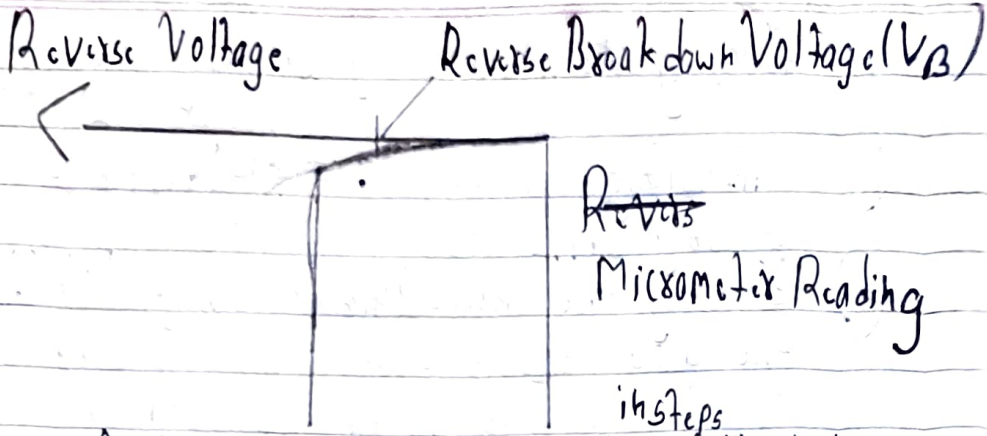 Reverse Voltage
Reverse Breakdown Voltage (VB)
Revers
Micrometer Reading
in steps